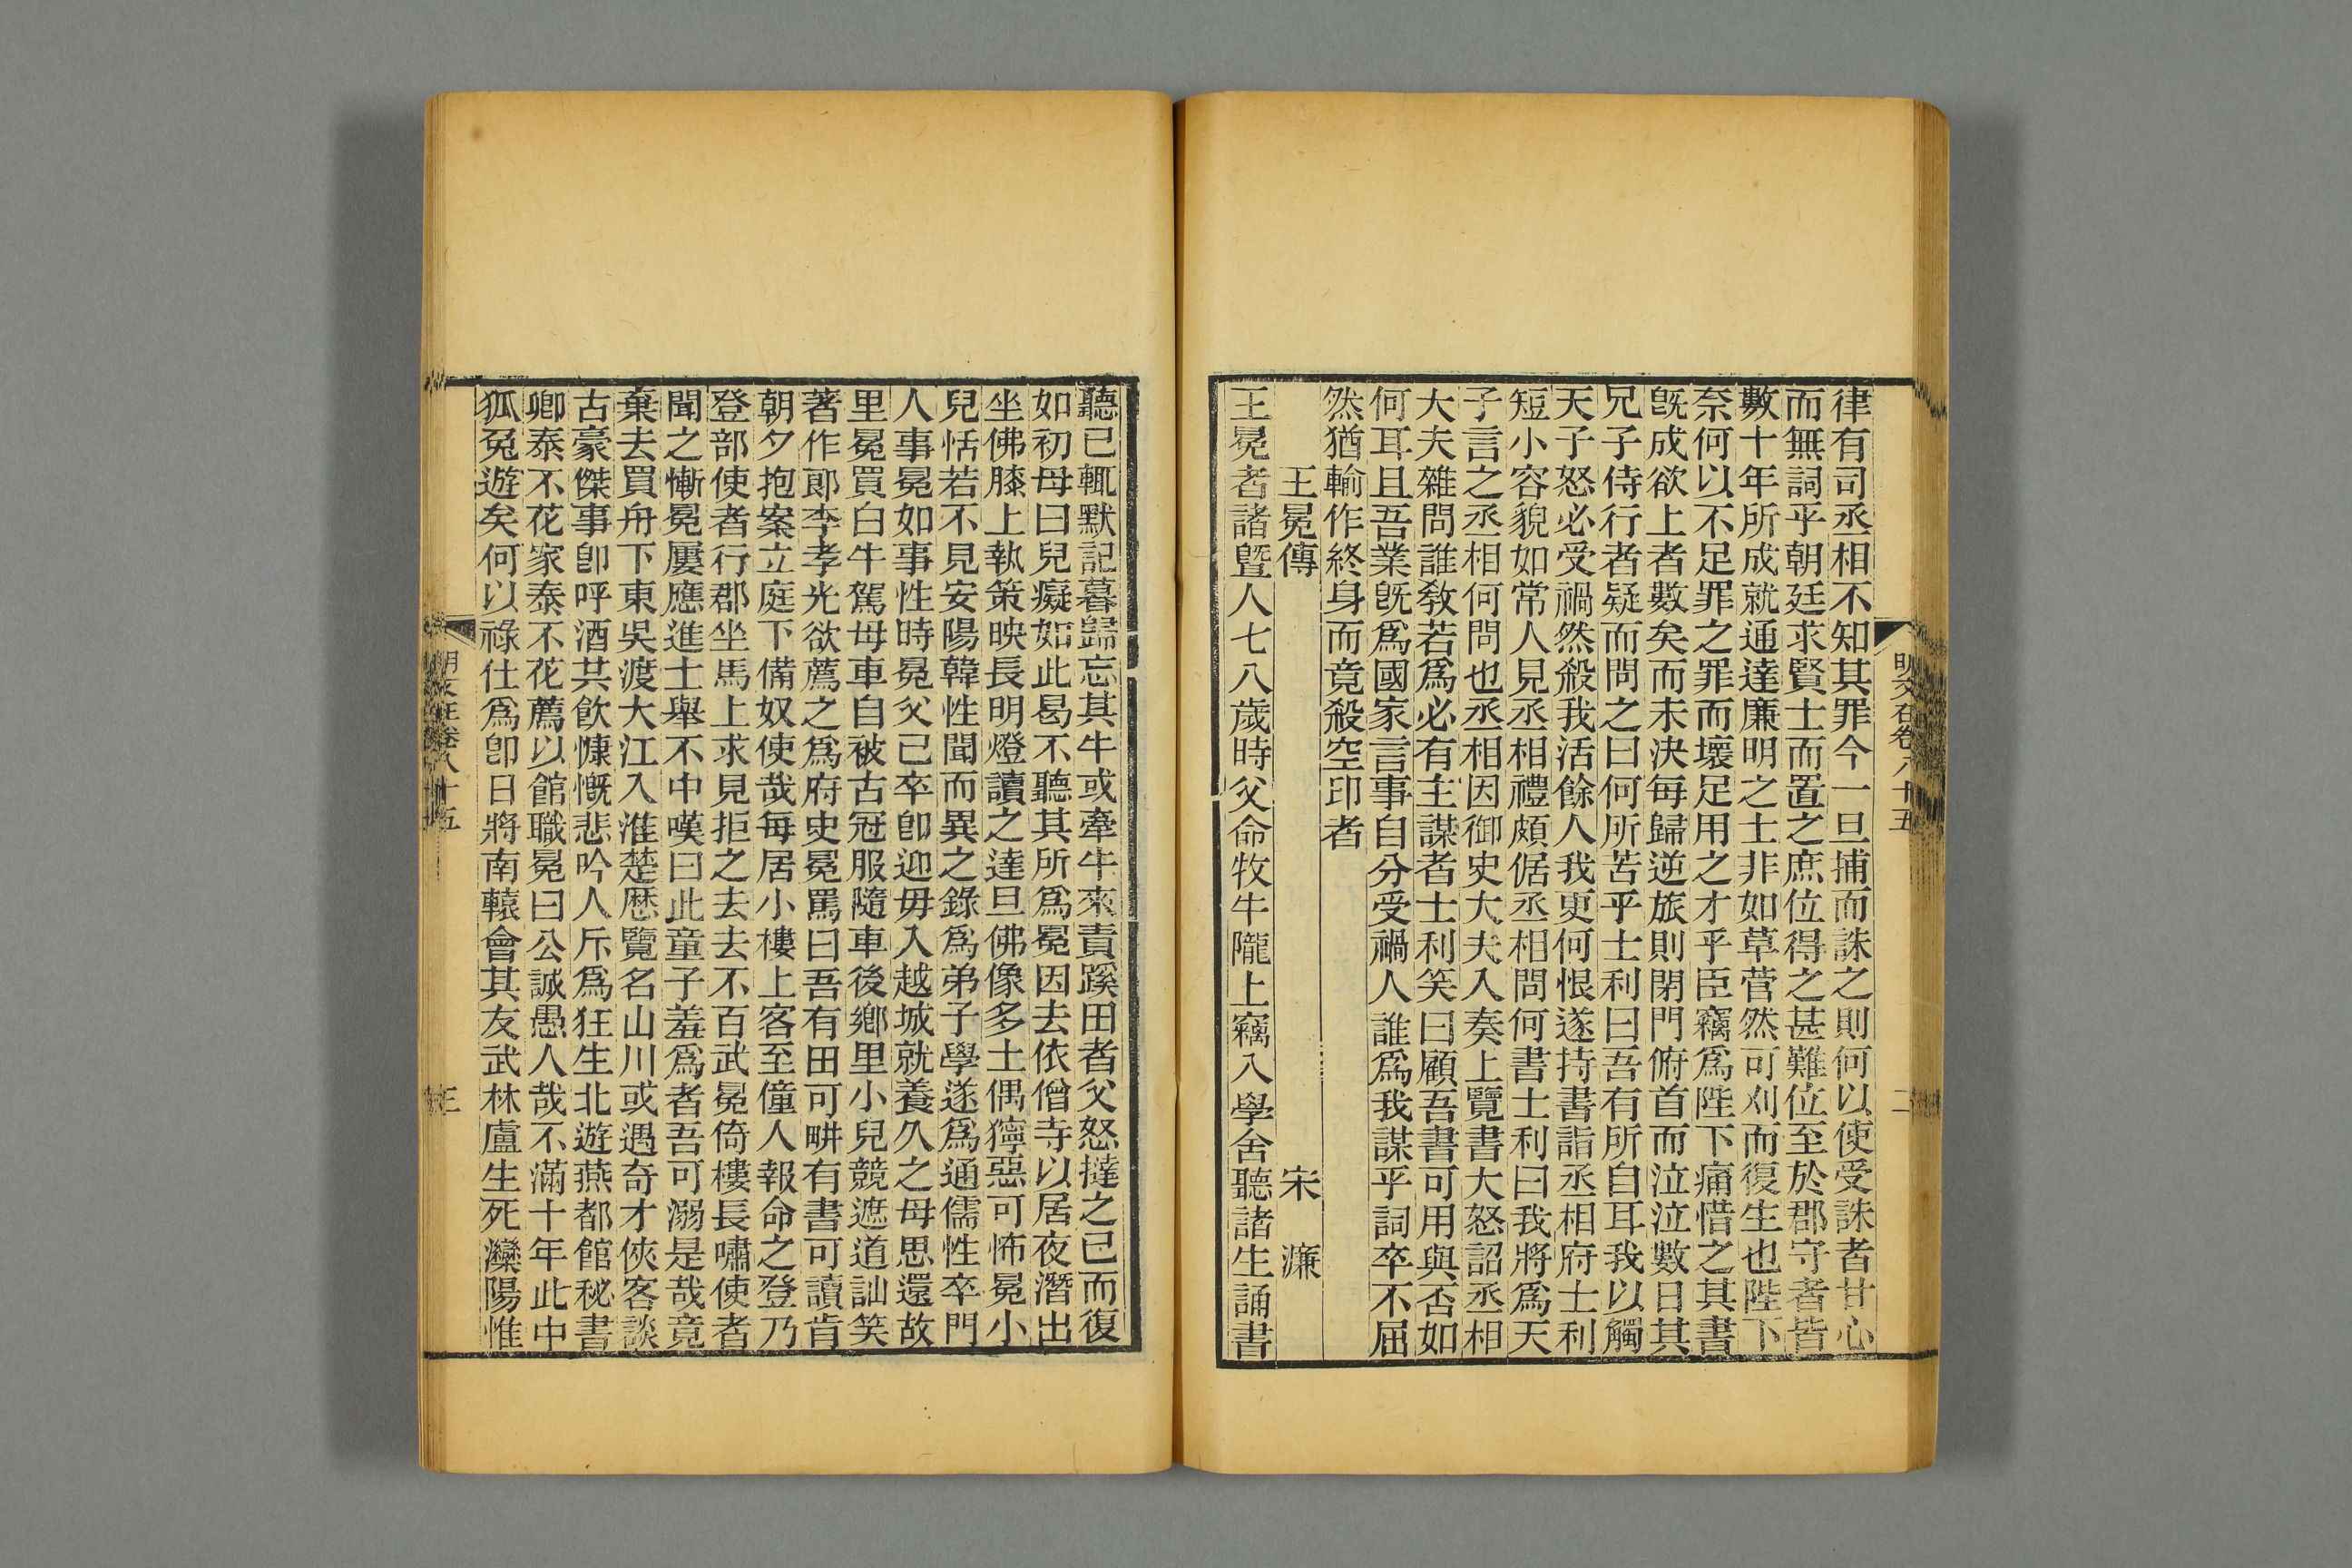 律有司丞相不知其罪今一旦捕而誅之則何以使受誅者甘心
而無詞乎朝廷求賢士而置之庶位得之甚難位至於郡守者皆
數十年所成就通達廉明之士非如草菅然可刈而復生也陛下
奈何以不足罪之罪而壞足用之才乎臣竊爲陛下痛惜之其書
旣成欲上者數矣而未決每歸逆旅則閉門俯首而泣泣數日其
兄子侍行者疑而問之曰何所苦乎士利曰吾有所自耳我以觸
天子怒必受禍然殺我活餘人我更何恨遂持書詣丞相府士利
短小容貌如常人見丞相禮頗倨丞相問何書士利曰我將爲天
子言之丞相何問也丞相因御史大夫入奏上覽書大怒詔丞相
大夫雜問誰敎若爲必有主謀者士利笑曰顧吾書可用與否如
何耳且吾業旣爲國家言事自分受禍人誰爲我謀乎詞卒不屈
然猶輸作終身而竟殺空印者
王冕傳 宋濂
王冕者諸曁人七八歲時父命牧牛隴上竊入學舍聽諸生誦書
聽已輒默記暮歸忘其牛或牽牛來責蹊田者父怒撻之已而復
如初母曰兒癡如此曷不聽其所爲冕因去依僧寺以居夜潛出
坐佛膝上執策映長明燈讀之達旦佛像多土偶獰惡可怖冕小
兒恬若不見安陽韓性聞而異之錄爲弟子學遂爲通儒性卒門
人事冕如事性時冕父已卒卽迎母入越城就養久之母思還故
里冕買白牛駕母車自被古冠服隨車後鄉里小兒競遮道訕笑
著作郎李孝光欲薦之爲府史冕罵曰吾有田可畊有書可讀肯
朝夕抱案立庭下備奴使哉每居小樓上客至僮人報命之登乃
登部使者行郡坐馬上求見拒之去去不百武冕倚樓長嘯使者
聞之慚冕屢應進士舉不中嘆曰此童子羞爲者吾可溺是哉竟
棄去買舟下東吳渡大江入淮楚歷覽名山川或遇奇才俠客談
古豪傑事卽呼酒共飮慷慨悲吟人斥爲狂生北遊燕都館秘書
卿泰不花家泰不花薦以館職冕曰公誠愚人哉不滿十年此中
狐兔遊矣何以祿仕爲卽日將南轅會其友武林盧生死灤陽惟